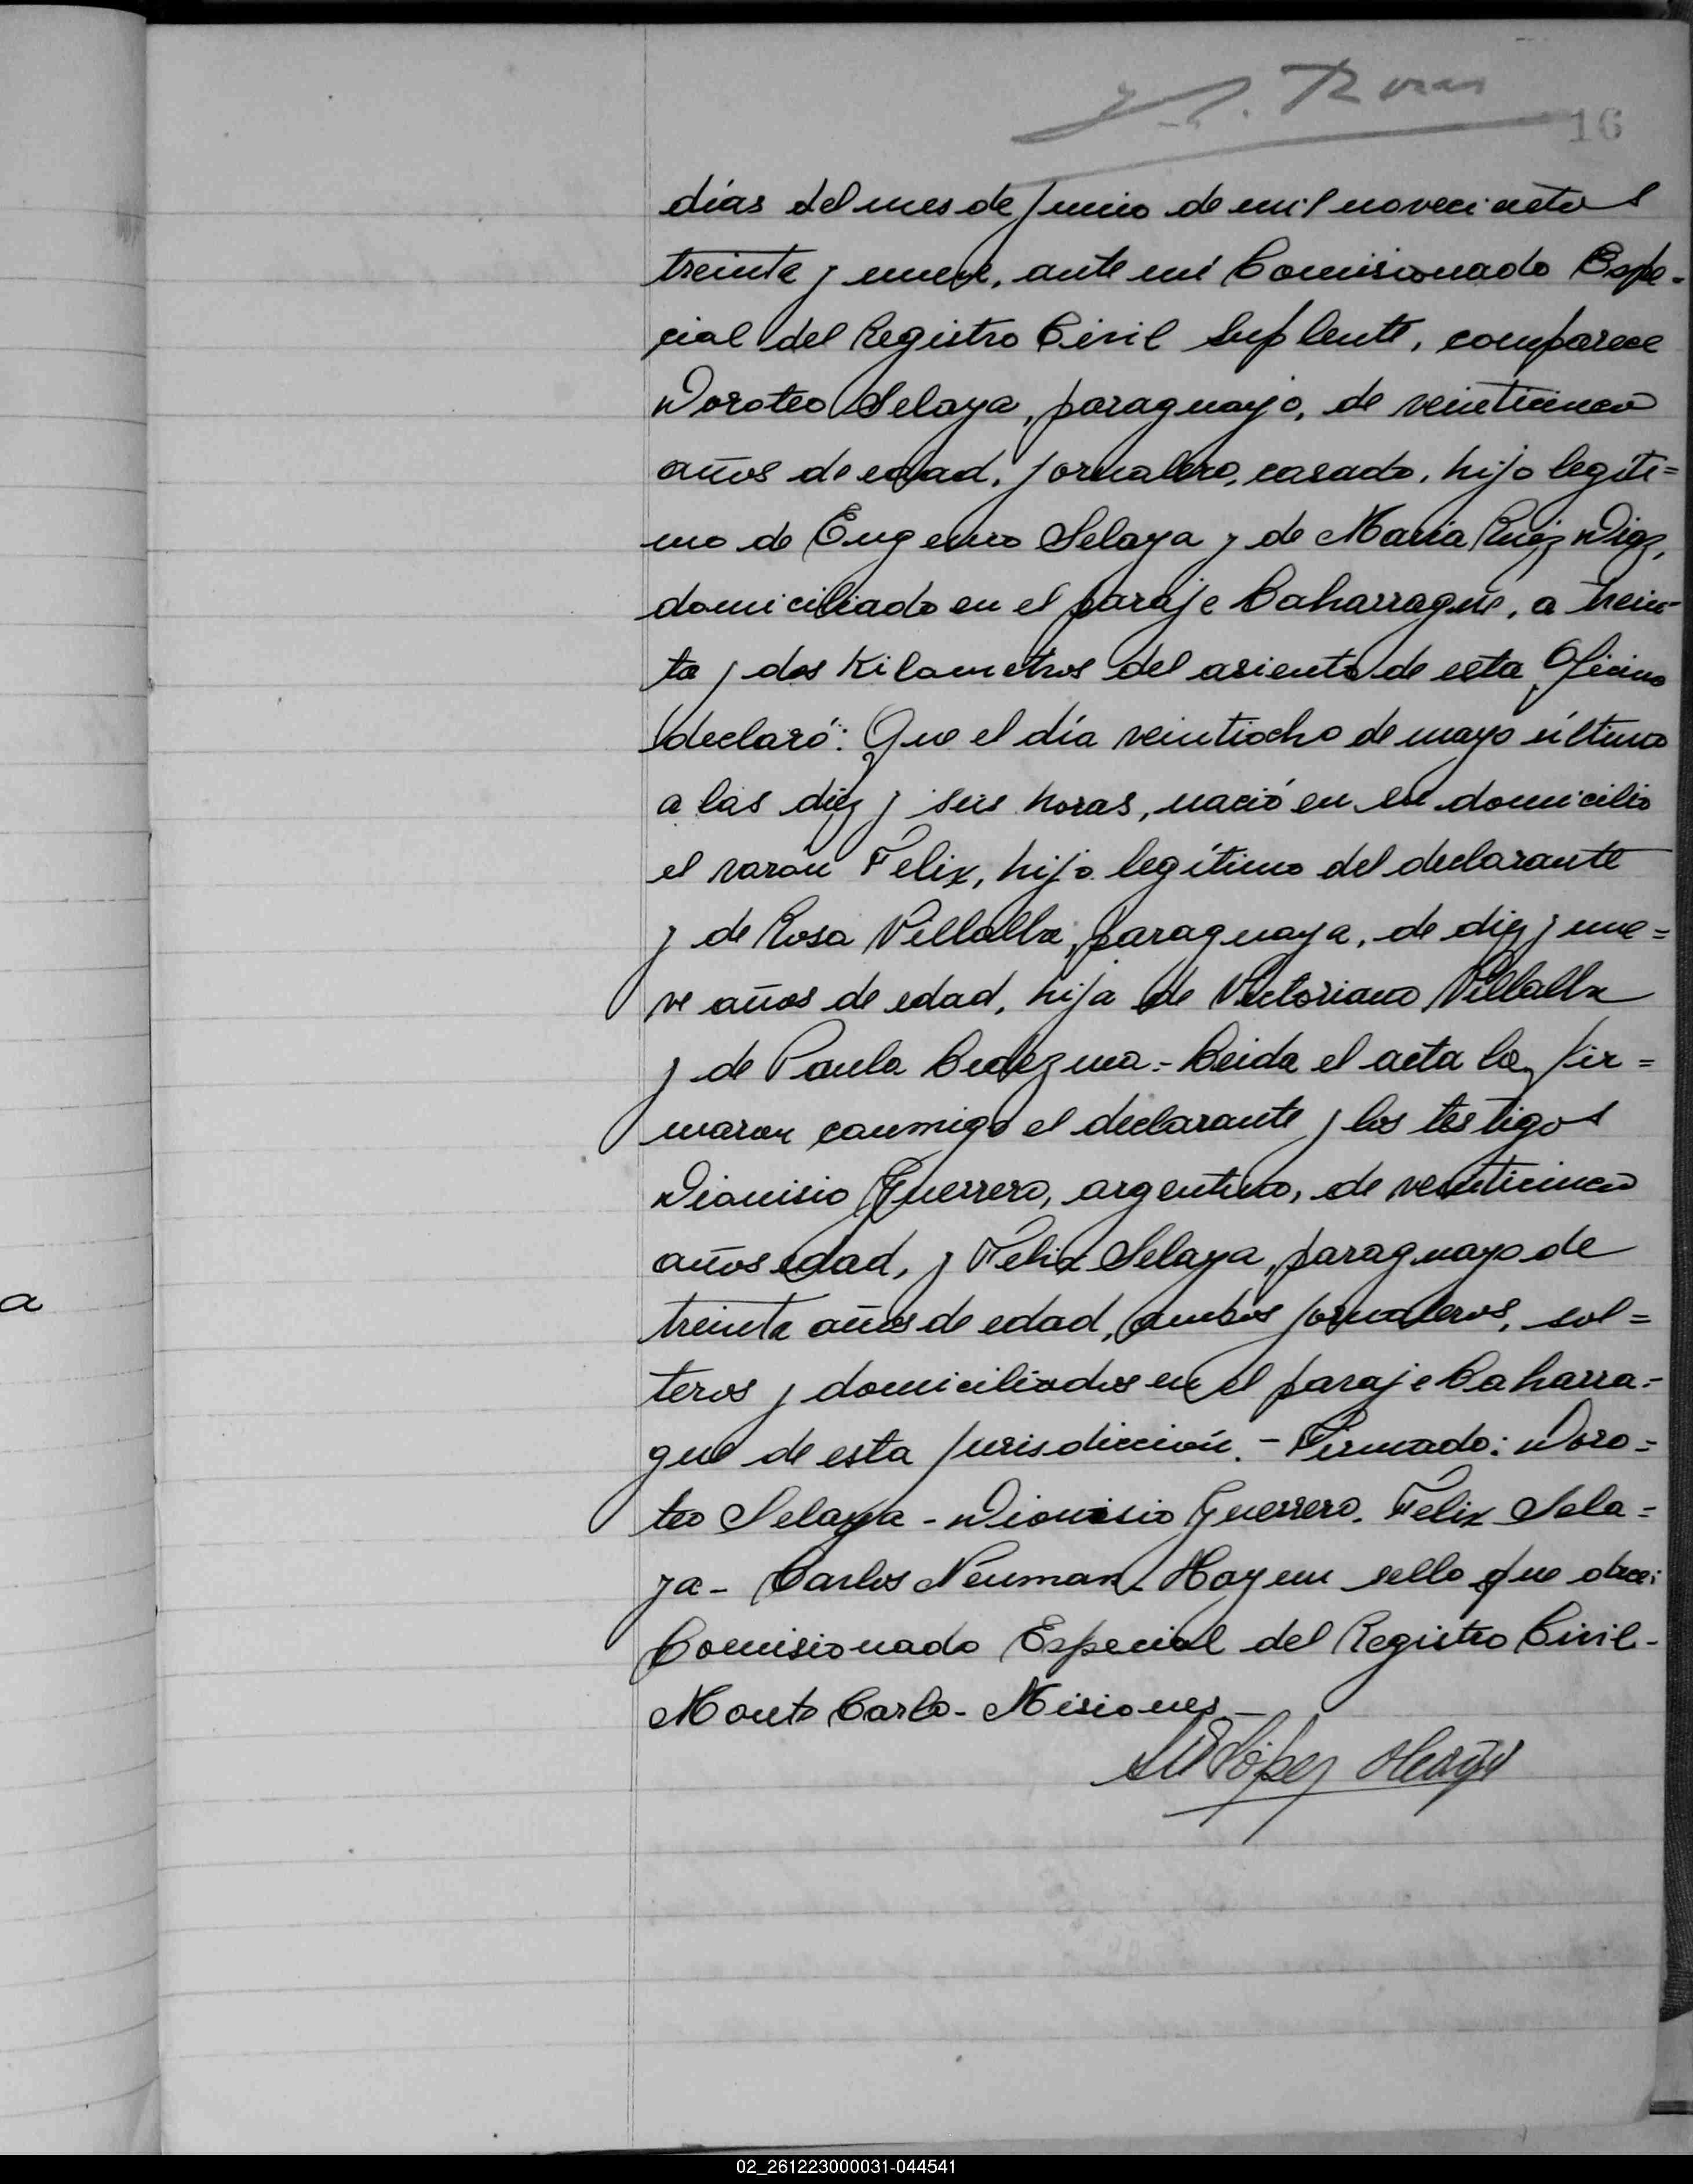 Rosas
16
días del mes de Junio de mil novecientos
treinta y nueve, ante mí Comisionado Espe-
cial del Registro Civil Suplente, comparece
Doroteo Selaya, paraguayo, de veinticinco
años de edad, jornalero, casado, hijo legíti=
mo de Eugenio Selaya y de Maria Ruiz Diaz,
domiciliado en el paraje Caharrague, a trein-
ta y dos Kilometros del asiento de esta Oficina
declaró: Que el día veintiocho de mayo último
a las diez y seis horas, nació en su domicilio
el varón Felix, hijo legítimo del declarante
y de Rosa Villalba, paraguaya, de diez y nue=
ve años de edad, hija de Victoriano Villalba
y de Paula - Leida el acta la fir=
maron conmigo el declarante y los testigos
Dionisio Guerrero, argentino, de veinticinco
años edad, y Felix Selaya, paraguayo de
treinta años de edad, ambos jornaleros, sol=
teros y domiciliados en el paraje Caharra-
gue de esta jurisdicción. - Firmado: Doro=
teo Selaya - Dionisio Guerrero. Felix Sela=
ya - Carlos Neuman. Hay un sello que dice:
Comisionado Especial del Registro Civil -
Monte Carlo - Misiones -
López
a
02_261223000031-044541